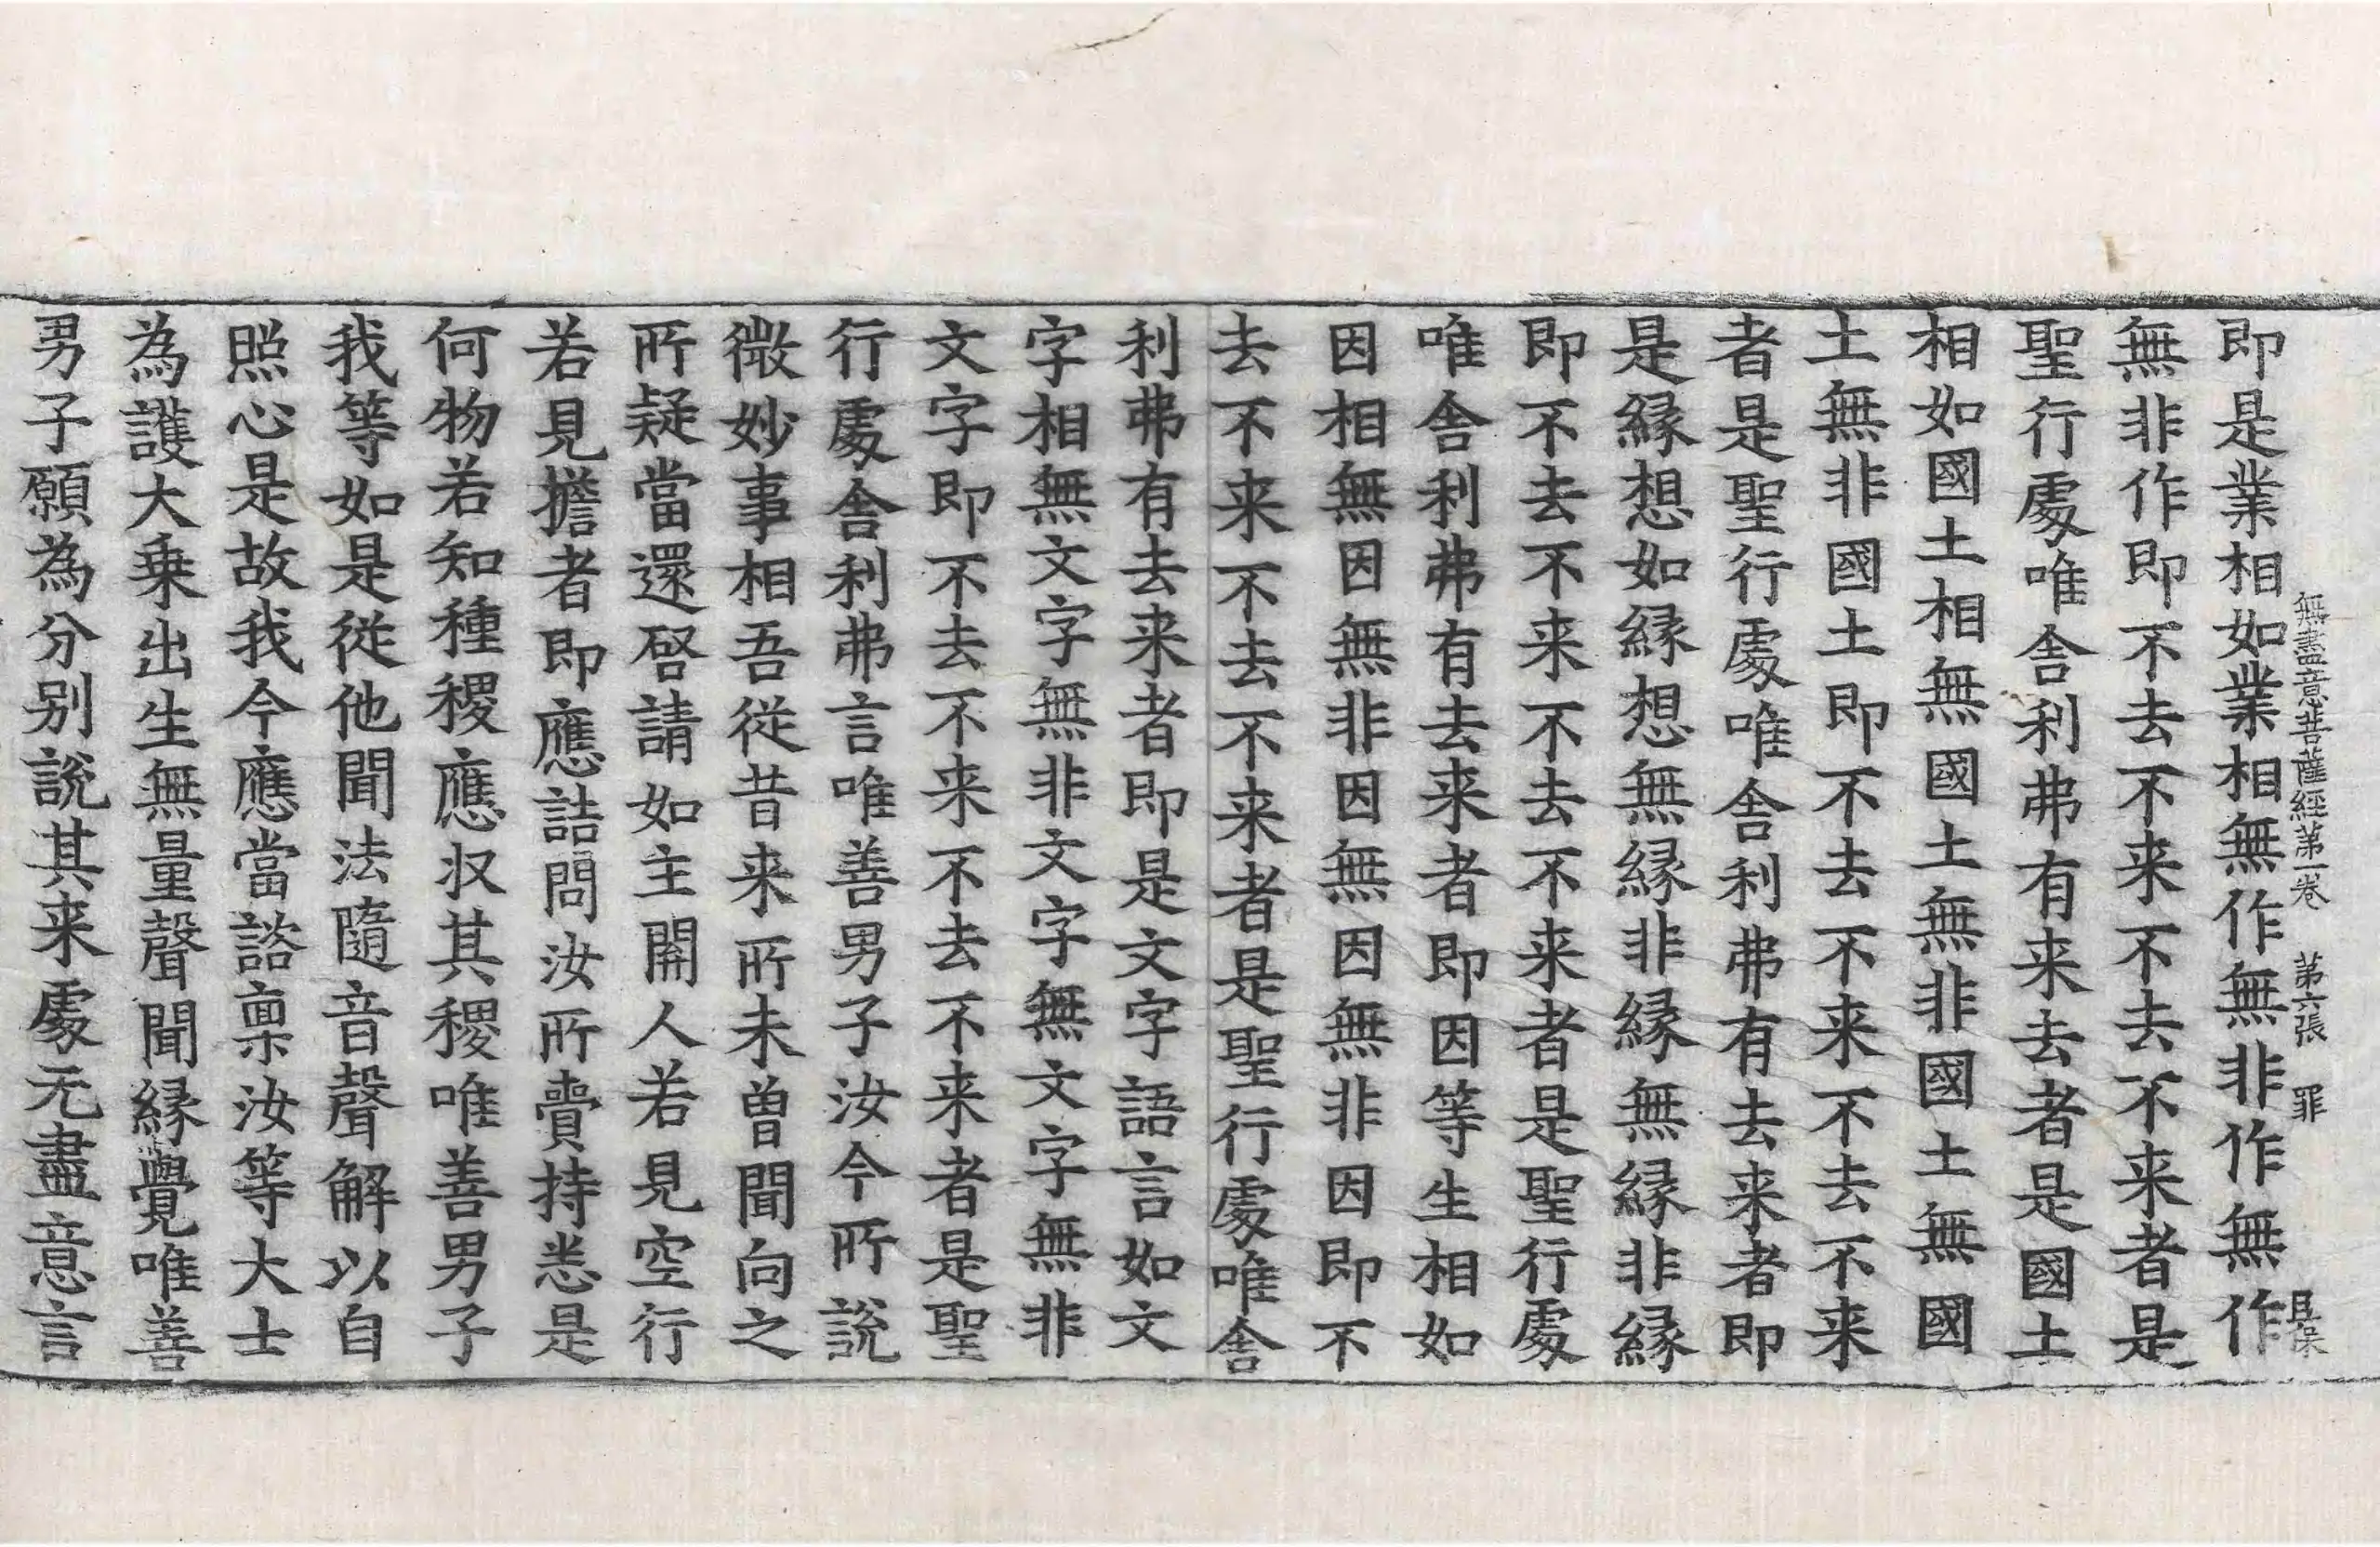 無盡意菩薩經第一卷　第六張　罪
即是業相如業相無作無非作無作
無非作即不去不来不去不来者是
聖行處唯舎利弗有来去者是國土
相如國土相無國土無非國土無國
土無非國土即不去不来不去不来
者是聖行處唯舎利弗有去来者即
是縁想如縁想無縁非縁無縁非縁
即不去不来不去不来者是聖行處
唯舎利弗有去来者即因等生相如
因相無因無非因無因無非因即不
去不来不去不来者是聖行處唯舎
利弗有去来者即是文字語言如文
字相無文字無非文字無文字無非
文字即不去不来不去不来者是聖
行處舎利弗言唯善男子汝今所說
微妙事相吾従昔来所未曽聞向之
所疑當還啓請如主関人若見空行
若見擔者即應詰問汝所賷持悉是
何物若知種稷應収其稷唯善男子
我等如是従他聞法隨音聲解以自
照心是故我今應當諮禀汝等大士
為護大乗出生無量聲聞縁覺唯善
男子願為分别說其来處无盡意言